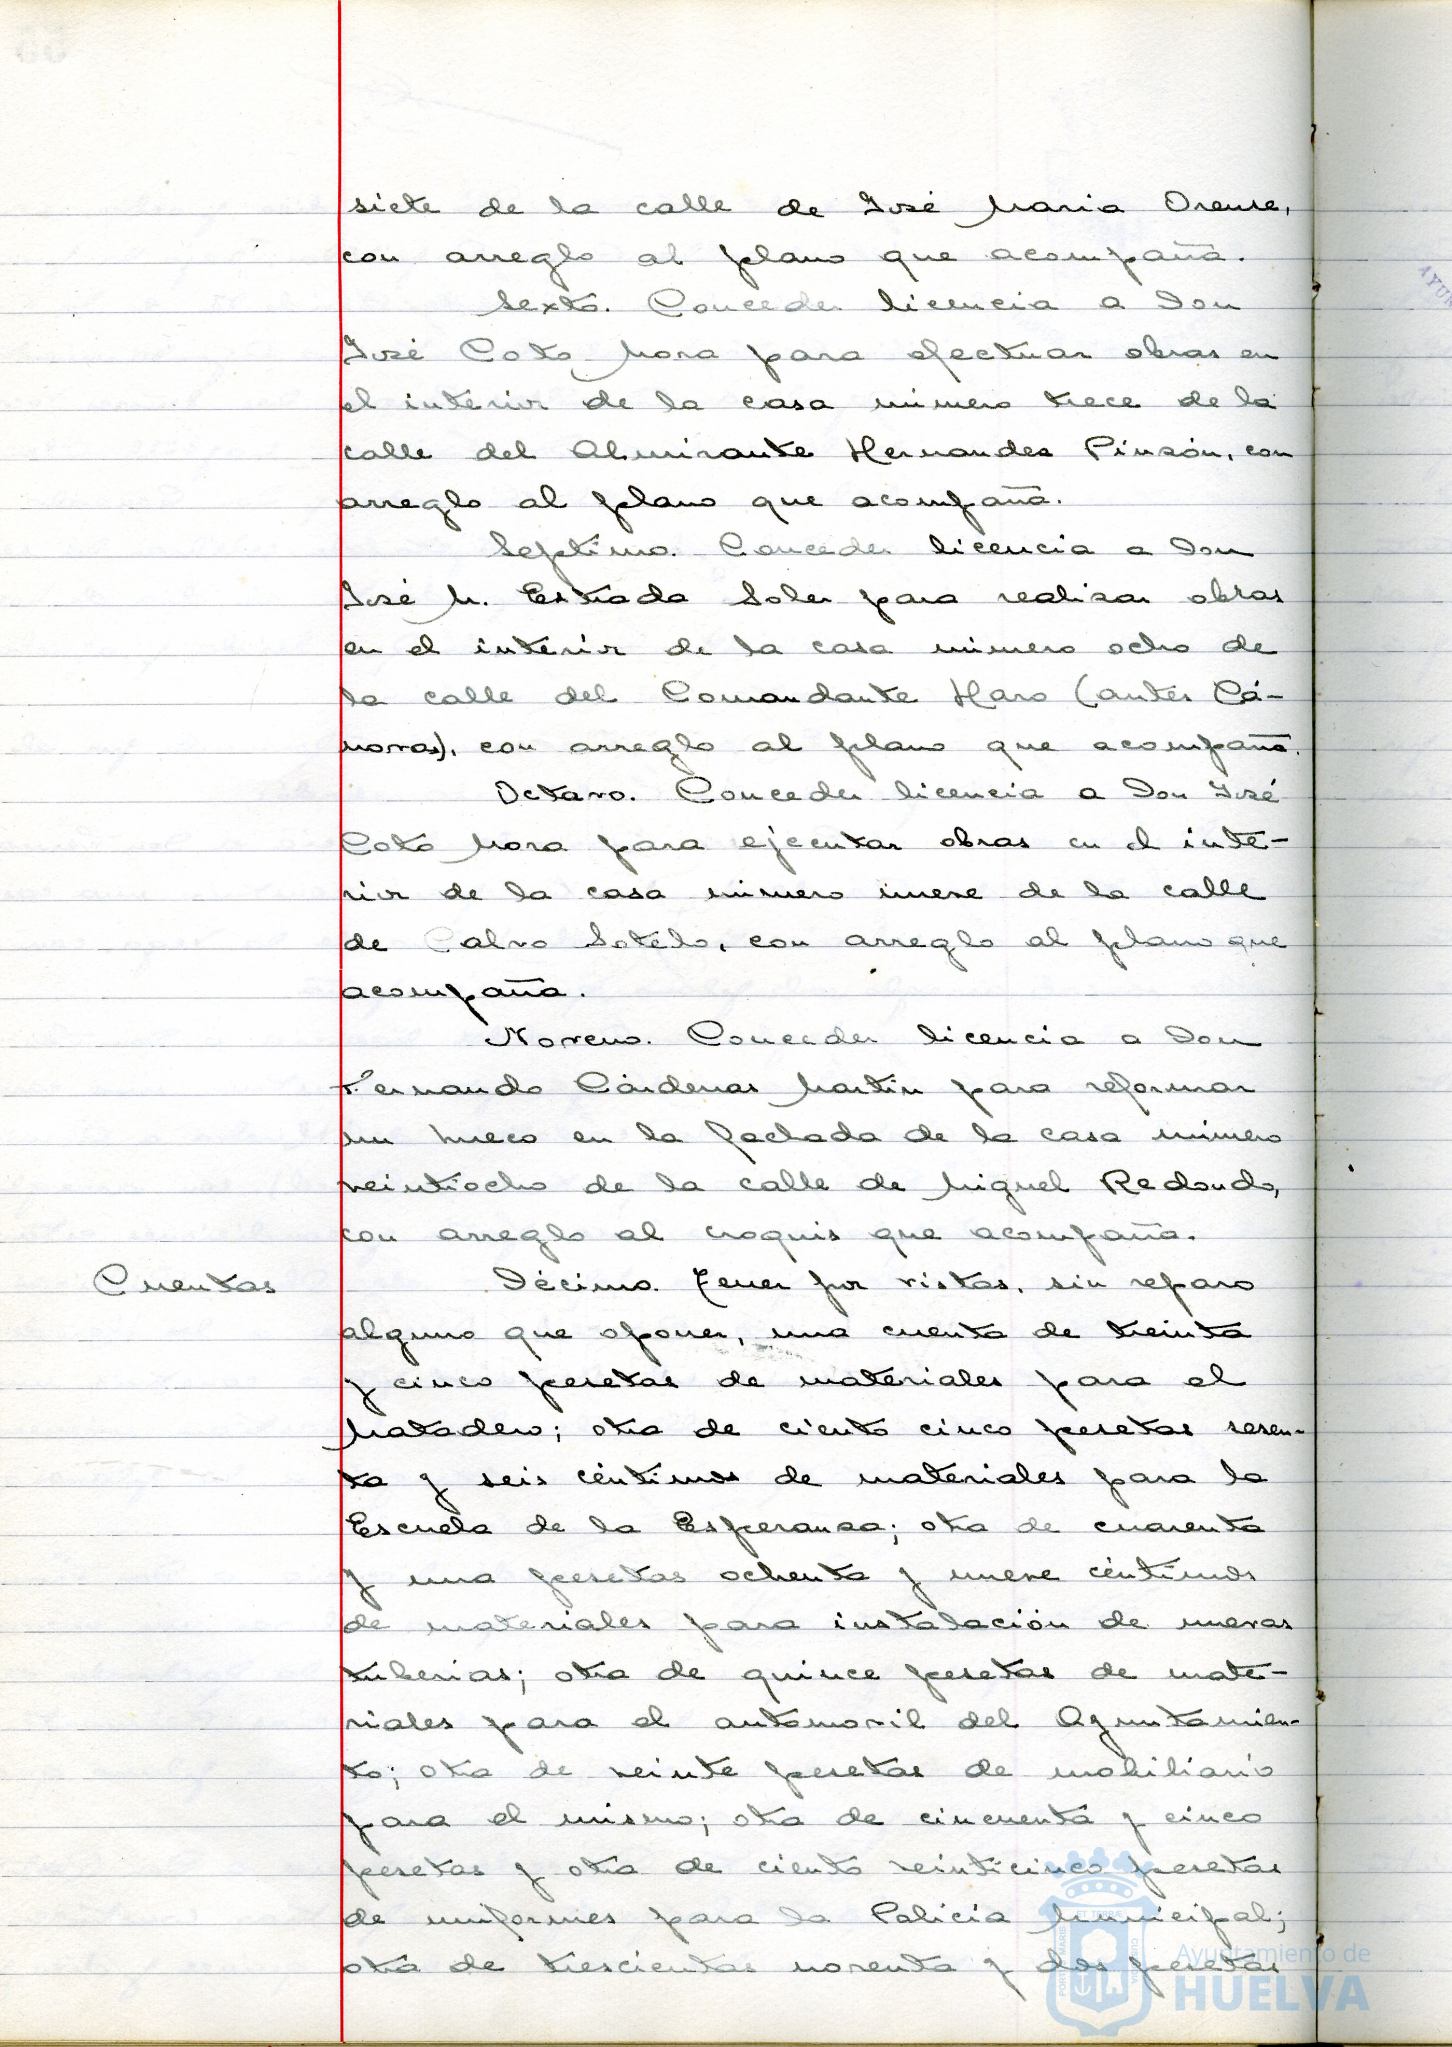 siete de la calle de José Maria Orense,
con arreglo al plano que acompaña.
Sexto. Conceder licencia a Don
José Coto Mora para efectuar obras en
el interior de la casa número trece de la
calle del Almirante Hernandez Pinzón, con
arreglo al plano que acompaña.
Septimo. Conceder licencia a Don
José M. Estrada Soler para realizar obras
en el interior de la casa número ocho de
la calle del Comandante Haro (antes Cá-
novas), con arreglo al plano que acompaña.
Octavo. Conceder licencia a Don José
Coto Mora para ejecutar obras en el inte-
rior de la casa número nueve de la calle
de Calvo Sotelo, con arreglo al plano que
acompaña.
Noveno. Conceder licencia a Don
Fernando Cárdenas Martín para reformar
un hueco en la fachada de la casa número
veintiocho de la calle de Miguel Redondo,
con arreglo al croquis que acompaña.
Cuentas
Décimo. Tener por vistas, sin reparo
alguno que oponer, una cuenta de treinta
y cinco pesetas de materiales para el
Matadero; otra de ciento cinco pesetas sesen-
ta y seis céntimos de materiales para la
Escuela de la Esperanza; otra de cuarenta
y una pesetas ochenta y nueve céntimos
de materiales para instalación de nuevas
tuberias; otra de quince pesetas de mate-
riales para el automovil del Ayuntamien-
to; otra de veinte pesetas de mobiliario
para el mismo; otra de cincuenta y cinco
pesetas y otra de ciento veinticinco pesetas
de uniformes para la Policia Municipal;
otra de trescientas noventa y dos pesetas
Ayuntamiento de
HUELVA